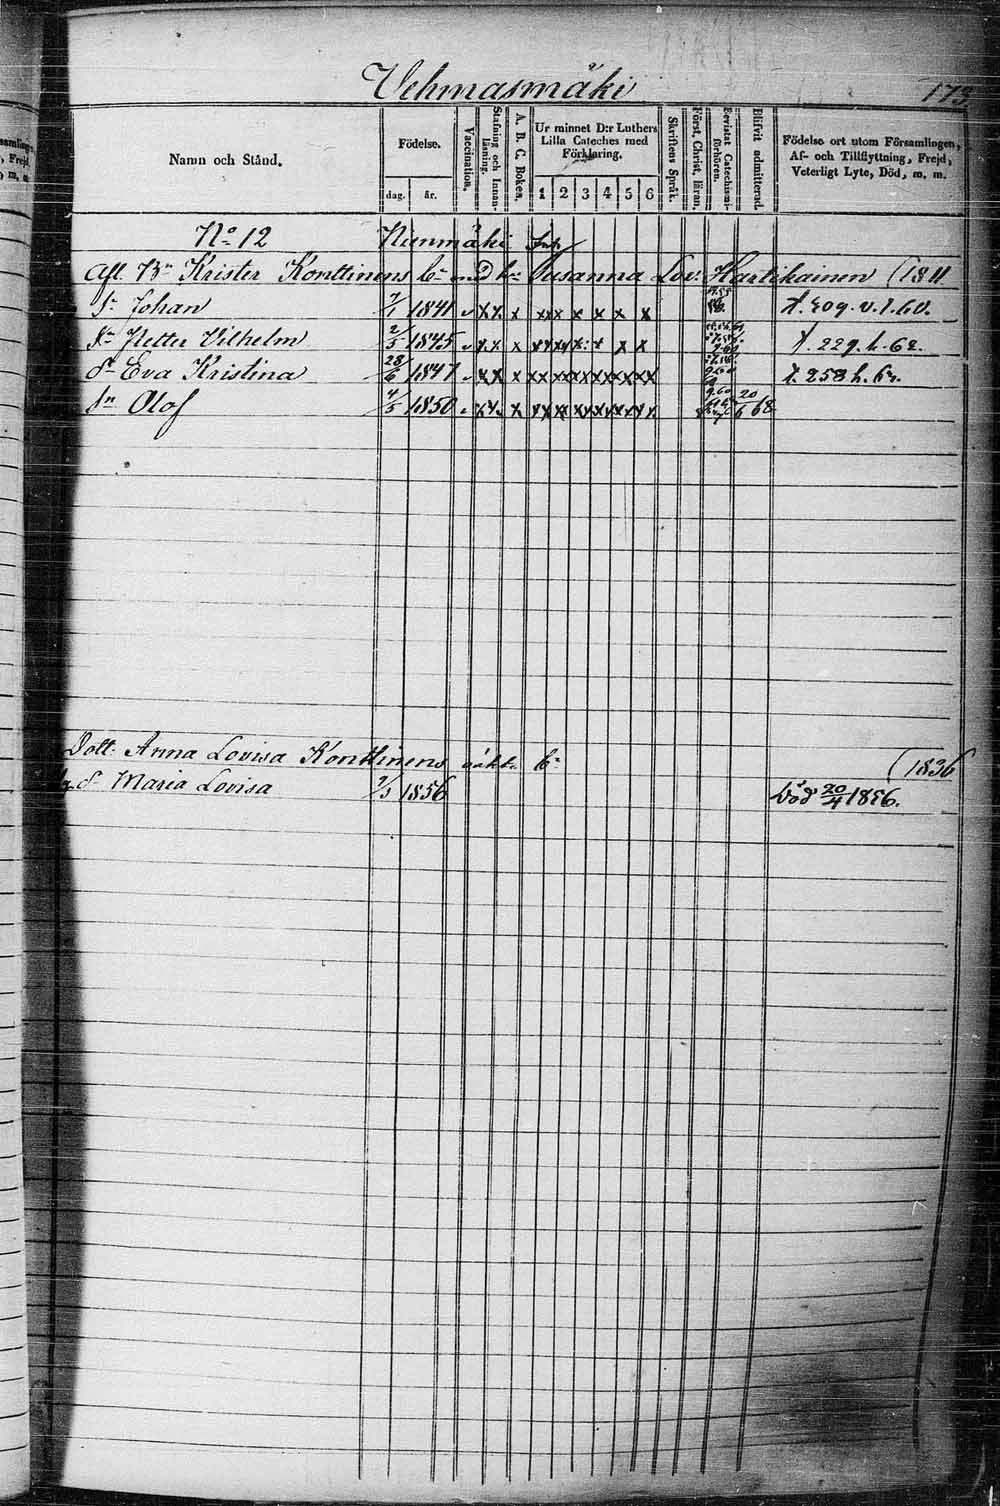 Vehmasmäki
173
Namn och Stånd.
Födelse.
dag.
år.
Vaccination.
Stafning och Innanläsning.
A. B. C. Boken.
Ur minnet D:r Luthers Lilla Cateches med Förklaring.
1 2 3 4 5 6
Skriftens Språk.
Först. Christ. läran.
Bevistat Catechismiförhören.
Blifvit admitterad.
Födelse ort utom Församlingen, Af- och Tillflyttning, Frejd, Veterligt Lyte, Död, m. m.
No 12 Niinmäki
Afl. Bn Krister Konttinens bn med hu Susanna Lov: Hartikainen (1811
Sn Johan 7/1 1841 x x x xxx x x x x t. 209. v. l. 60.
Sn Petter Vilhelm 2/5 1845 t. 229. h. 62.
dr Eva Kristina 28/6 1847 t. 258 h. 62.
Sn Olof 4/5 1850 20/6 68
Dott. Anna Lovisa Konttinens oäkta bn (1836
d. Maria Lovisa 7/3 1856 Död 20/4 1856.